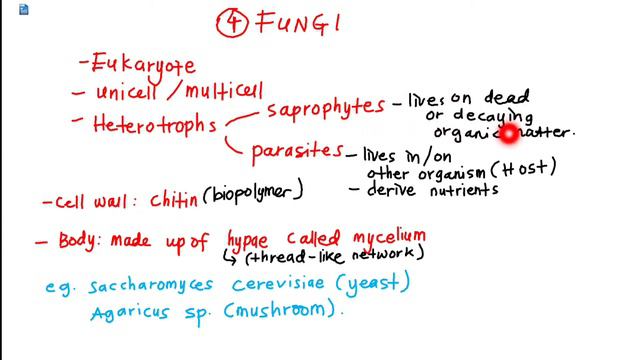 ④ FUNGI
- Eukaryote
- unicell / multicell
- Heterotrophs
saprophytes - lives on dead
or decaying
organic matter.
parasites - lives in/on
other organism (Host)
- derive nutrients
- cell wall: chitin (biopolymer)
- Body: made up of hypae called mycelium
↳ (thread-like network)
eg. saccharomyces cerevisiae (yeast)
Agaricus sp. (mushroom).